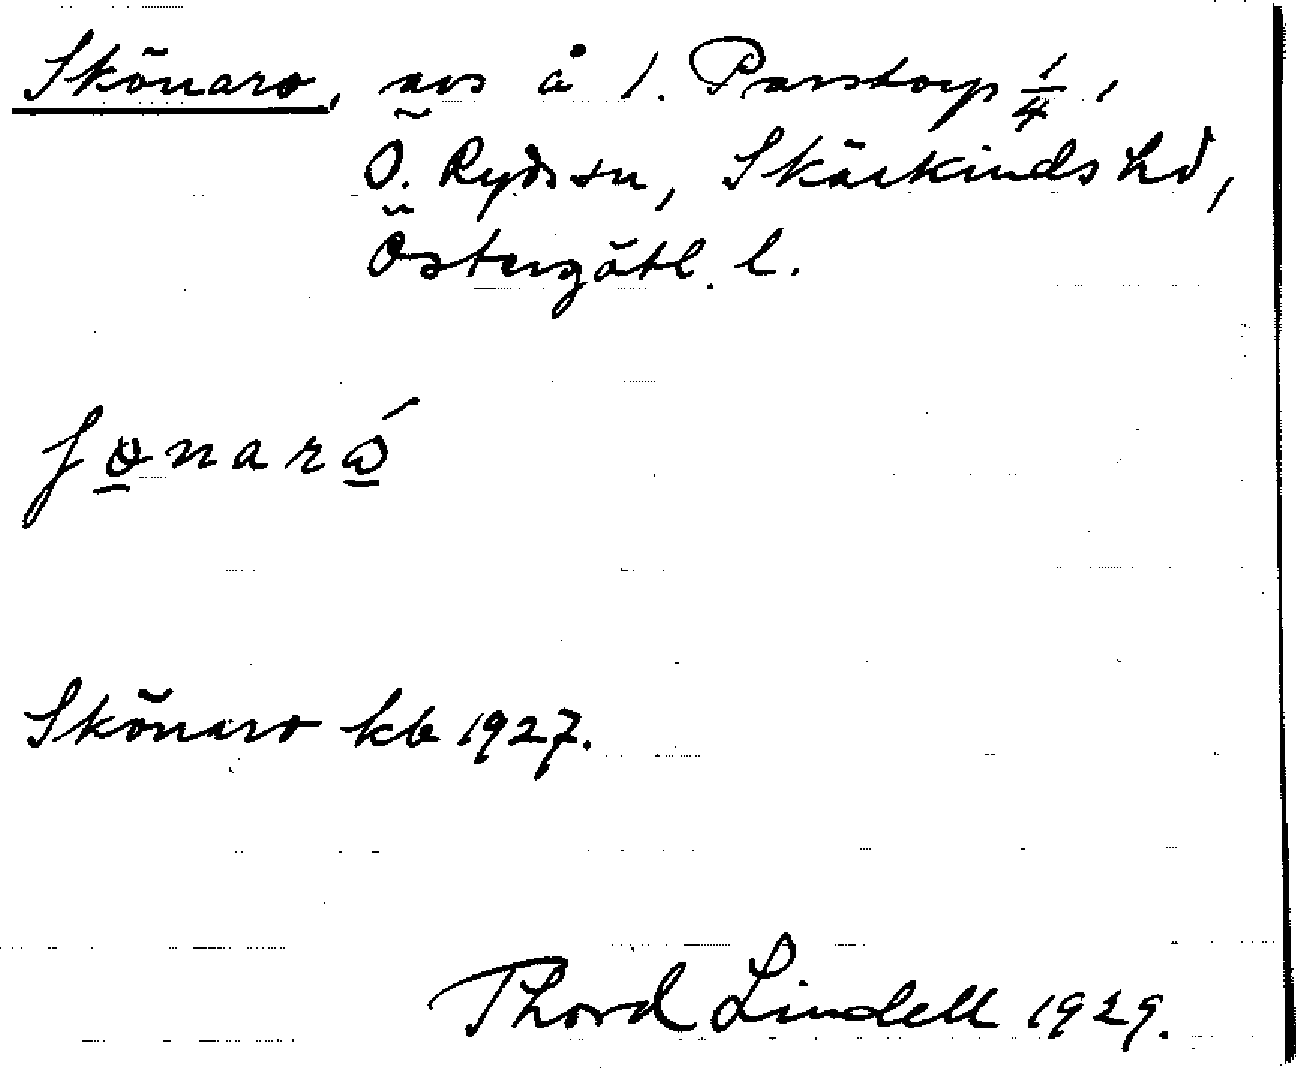 Skönaro, avs å 1. Parstorp 1/4,
Ö. Ryds sn, Skärkinds hd,
Östergötl. l.
Skönaro kb 1927.
Thord Lindell 1929.